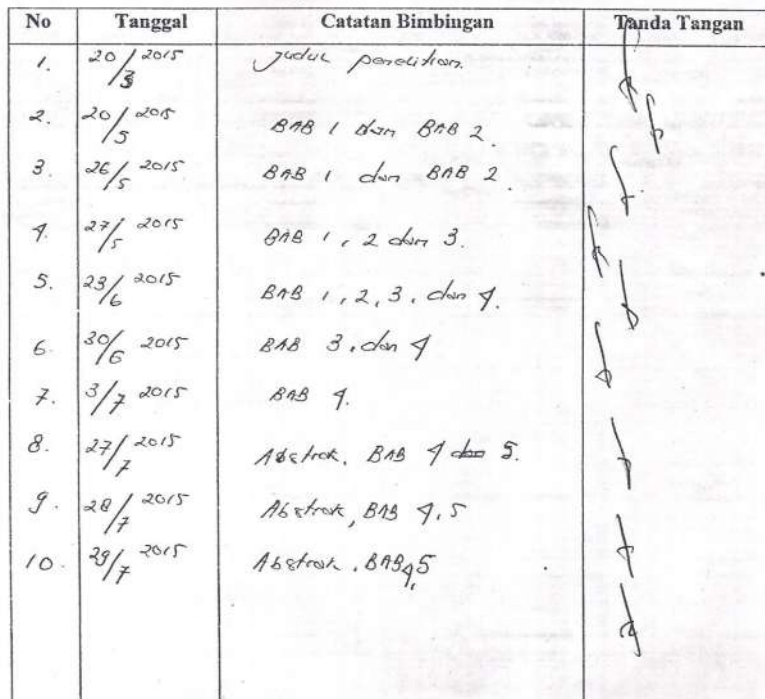 No Tanggal Catatan Bimbingan Tanda Tangan
1. 20/3 2015 Judul penelitian.
2. 20/5 2015 BAB 1 dan BAB 2
3. 26/5 2015 BAB 1 dan BAB 2.
4. 27/5 2015 BAB 1, 2 dan 3.
5. 23/6 2015 BAB 1, 2, 3, dan 4.
6. 30/6 2015 BAB 3, dan 4
7. 3/7 2015 BAB 4.
8. 27/7 2015 Abstrak, BAB 4 dan 5.
9. 28/7 2015 Abstrak, BAB 4, 5
10. 29/7 2015 Abstrak, BAB 4, 5